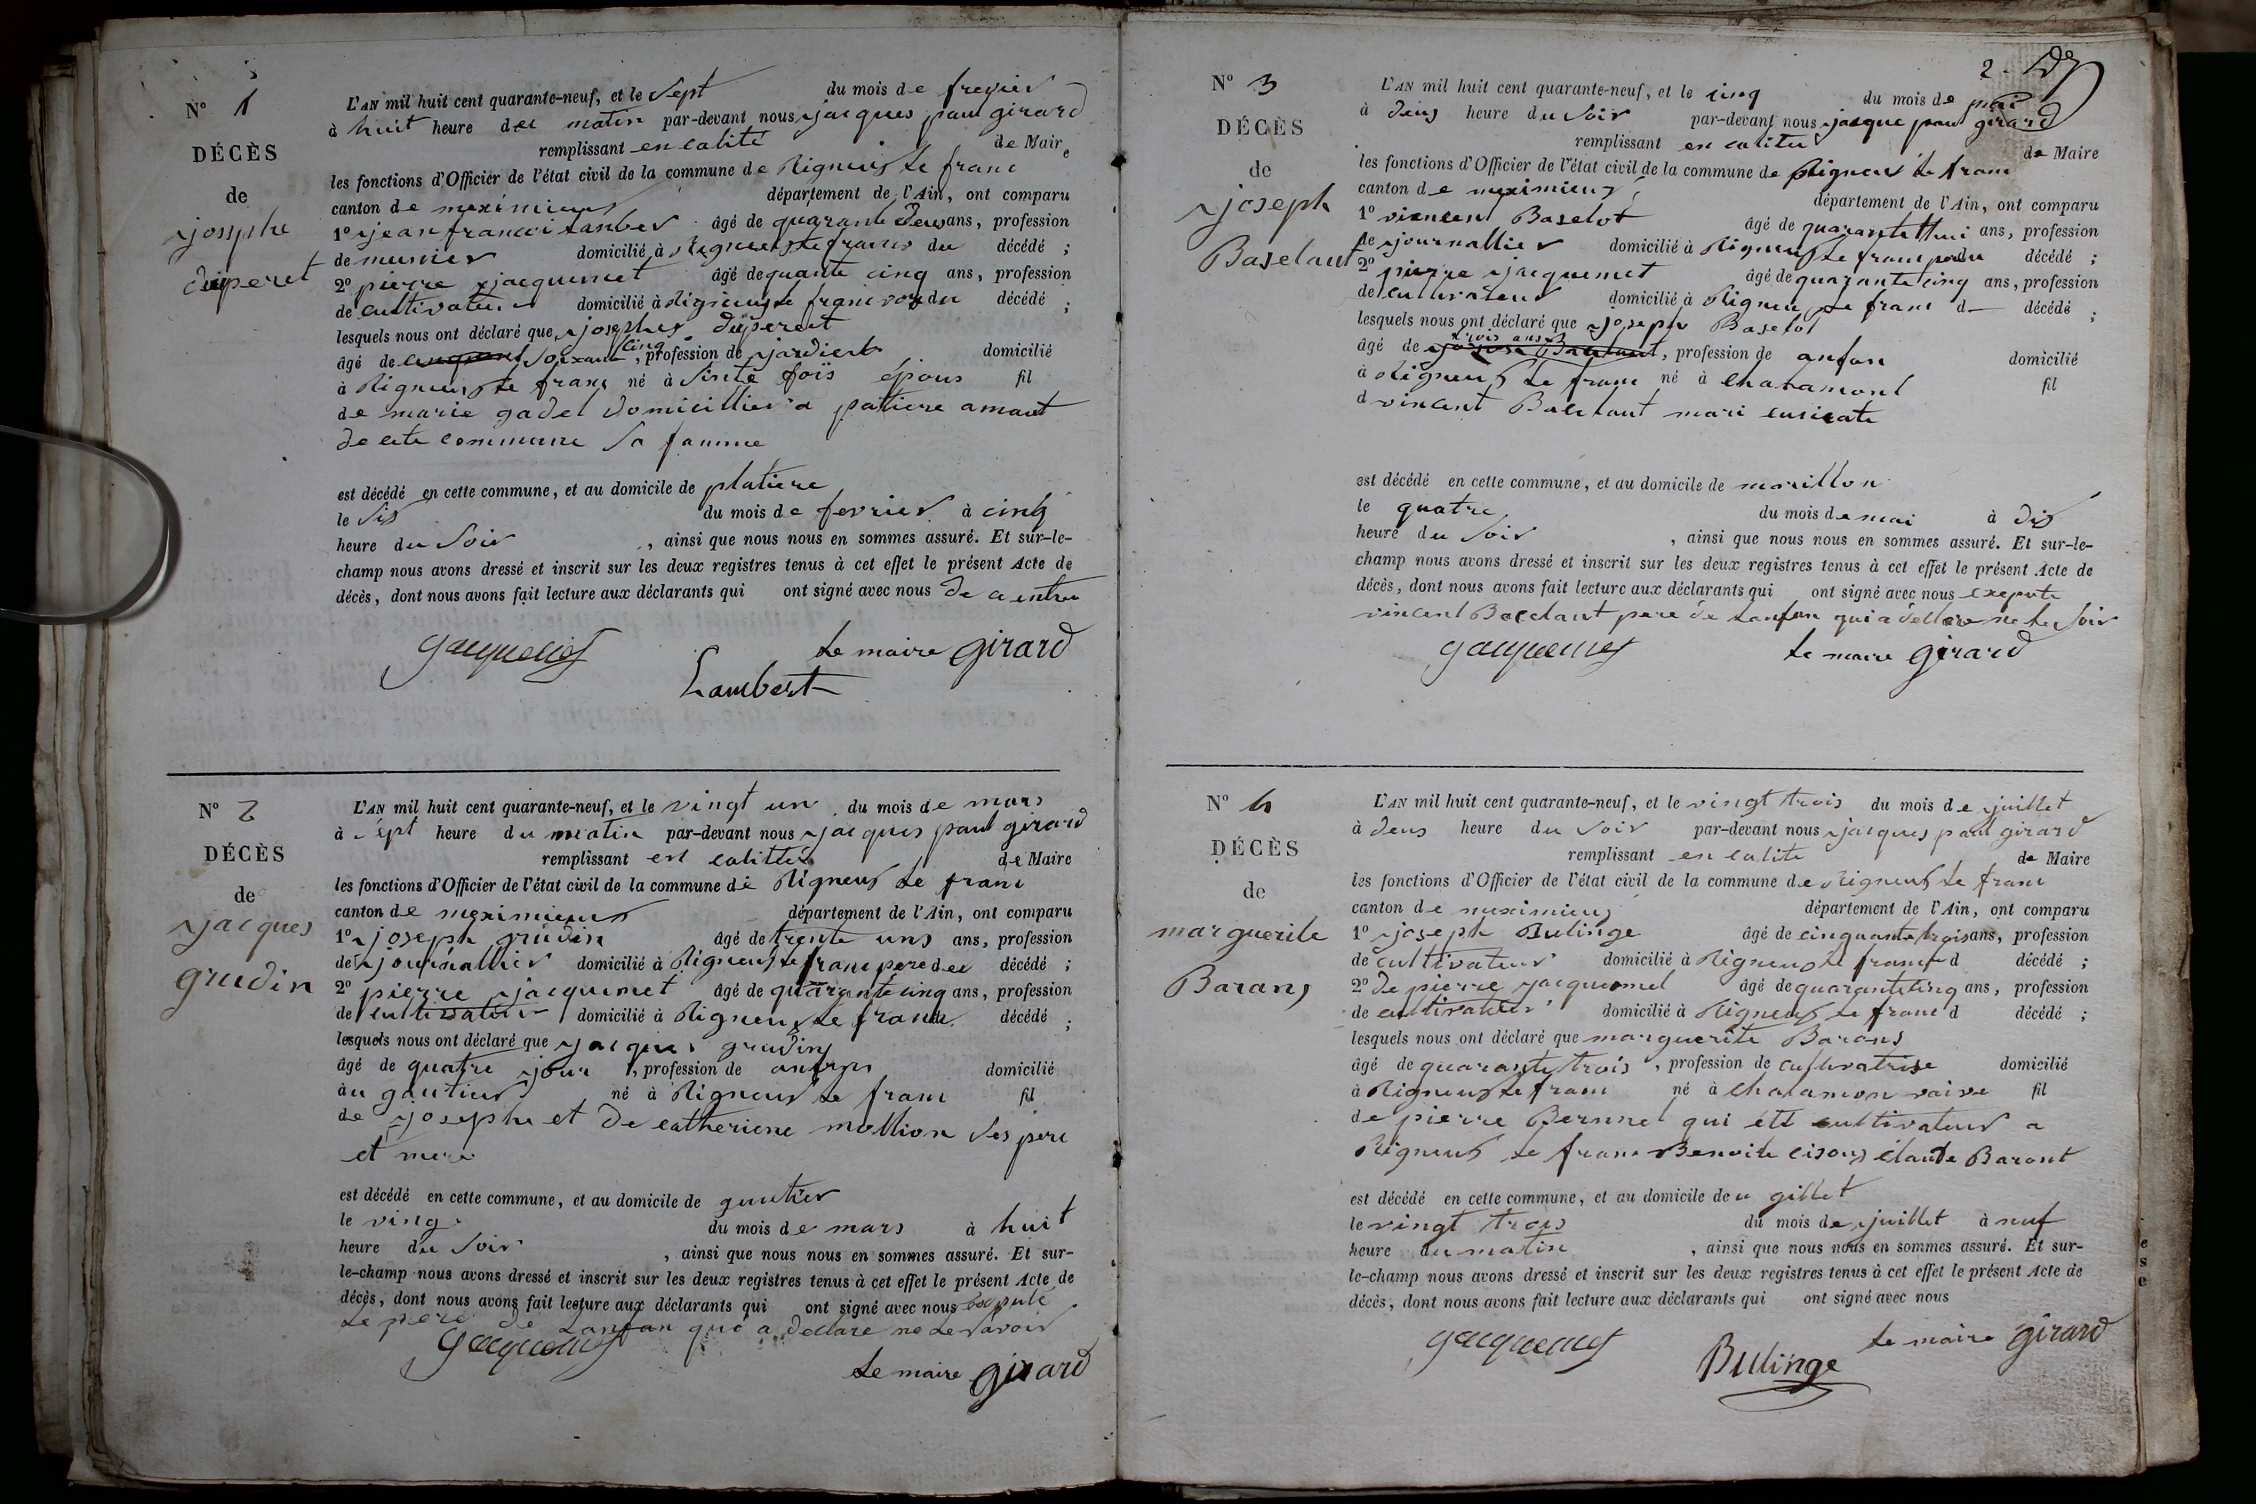 N° 1
DÉCÈS
de
josephe
duperet
L'AN mil huit cent quarante-neuf, et le sept du mois de frevier
à huit heure deu matin par-devant nous jacques paul girard
remplissant en calité de Maire
les fonctions d'Officier de l'état civil de la commune de Rigneus le franc
canton de meximieus département de l'Ain, ont comparu
1° jean francoi Lamber âgé de quarante deus ans, profession
de munier domicilié à Rigneus le franc du décédé ;
2° pierre jacquemet âgé de quante cinq ans, profession
de cultivateur domicilié à Rigneus le franc du décédé ;
lesquels nous ont déclaré que josephe duperet
âgé de soixante cinq, profession de jardier domicilié
à Rigneus le franc né à foïs épous fil
de marie gadel domicillier a patiere amant
de cete commune sa famme
est décédé en cette commune, et au domicile de platiere
le sis du mois de fevrier à cinq
heure du soir, ainsi que nous nous en sommes assuré. Et sur-le-
champ nous avons dressé et inscrit sur les deux registres tenus à cet effet le présent Acte de
décès, dont nous avons fait lecture aux déclarants qui ont signé avec nous
Jacquemet le maire girard
Lambert
N° 2
DÉCÈS
de
jacques
grudin
L'AN mil huit cent quarante-neuf, et le vingt un du mois de mars
à sept heure du matin par-devant nous jacques paul girard
remplissant en calitté de Maire
les fonctions d'Officier de l'état civil de la commune de Rigneus le franc
canton de meximieus département de l'Ain, ont comparu
1° joseph grudin âgé de trente uns ans, profession
de journallier domicilié à Rigneus le franc pere deu décédé ;
2° pierre jacquemet âgé de quarante cinq ans, profession
de cultivateur domicilié à Rigneus le franc décédé ;
lesquels nous ont déclaré que jacques grudin
âgé de quatre jour, profession de domicilié
au gautier né à Rigneus le franc fil
de josephe et de catheriene mollion ses pere
et mere
est décédé en cette commune, et au domicile de gautier
le ving du mois de mars à huit
heure du soir, ainsi que nous nous en sommes assuré. Et sur-
le-champ nous avons dressé et inscrit sur les deux registres tenus à cet effet le présent Acte de
décès, dont nous avons fait lecture aux déclarants qui ont signé avec nous
le pere de Lanfan qui a declare ne le savoir
Jacquemet
le maire girard
2.
N° 3
DÉCÈS
de
joseph
Baselant
L'AN mil huit cent quarante-neuf, et le cinq du mois de mai
à deus heure du soir par-devant nous jacque paul girard
remplissant en calitee de Maire
les fonctions d'Officier de l'état civil de la commune de Rigneus le franc
canton de meximieus département de l'Ain, ont comparu
1° vincent Baselot âgé de quarante ans, profession
de journallier domicilié à Rigneus le franc décédé ;
2° pierre jacquemet âgé de quarante cinq ans, profession
de cultivateur domicilié à Rigneus le franc d décédé ;
lesquels nous ont déclaré que joseph Baselot
âgé de trois ans, profession de anfan domicilié
à Rigneus le franc né à chanamont fil
d vincent mari
est décédé en cette commune, et au domicile de morillon
le quatre du mois de mai à dis
heure du soir, ainsi que nous nous en sommes assuré. Et sur-le-
champ nous avons dressé et inscrit sur les deux registres tenus à cet effet le présent Acte de
décès, dont nous avons fait lecture aux déclarants qui ont signé avec nous
vincent pere de Lanfan qui a dellare ne le soir
Jacquemet le maire girard
N° 4
DÉCÈS
de
marguerite
Barans
L'AN mil huit cent quarante-neuf, et le vingt trois du mois de juillet
à deus heure du soir par-devant nous jacques paul girard
remplissant en calite de Maire
les fonctions d'Officier de l'état civil de la commune de Rigneus le franc
canton de meximieus département de l'Ain, ont comparu
1° joseph Bulinge âgé de cinquante trois ans, profession
de cultivateur domicilié à Rigneus le franc d décédé ;
2° de pierre jacquemet âgé de quarante cinq ans, profession
de cultivateur domicilié à Rigneus le franc d décédé ;
lesquels nous ont déclaré que marguerite Barans
âgé de quarante trois, profession de cultivatrise domicilié
à Rigneus le franc né à chalamon vaive fil
de pierre Bernnel qui ett cultivateur a
Rigneus le franc Benoite cisons claude Baront
est décédé en cette commune, et au domicile de u gillet
le vingt trois du mois de juillet à nuf
heure du matin, ainsi que nous nous en sommes assuré. Et sur-
le-champ nous avons dressé et inscrit sur les deux registres tenus à cet effet le présent Acte de
décès, dont nous avons fait lecture aux déclarants qui ont signé avec nous
Jacquemet le maire girard
Bulinge